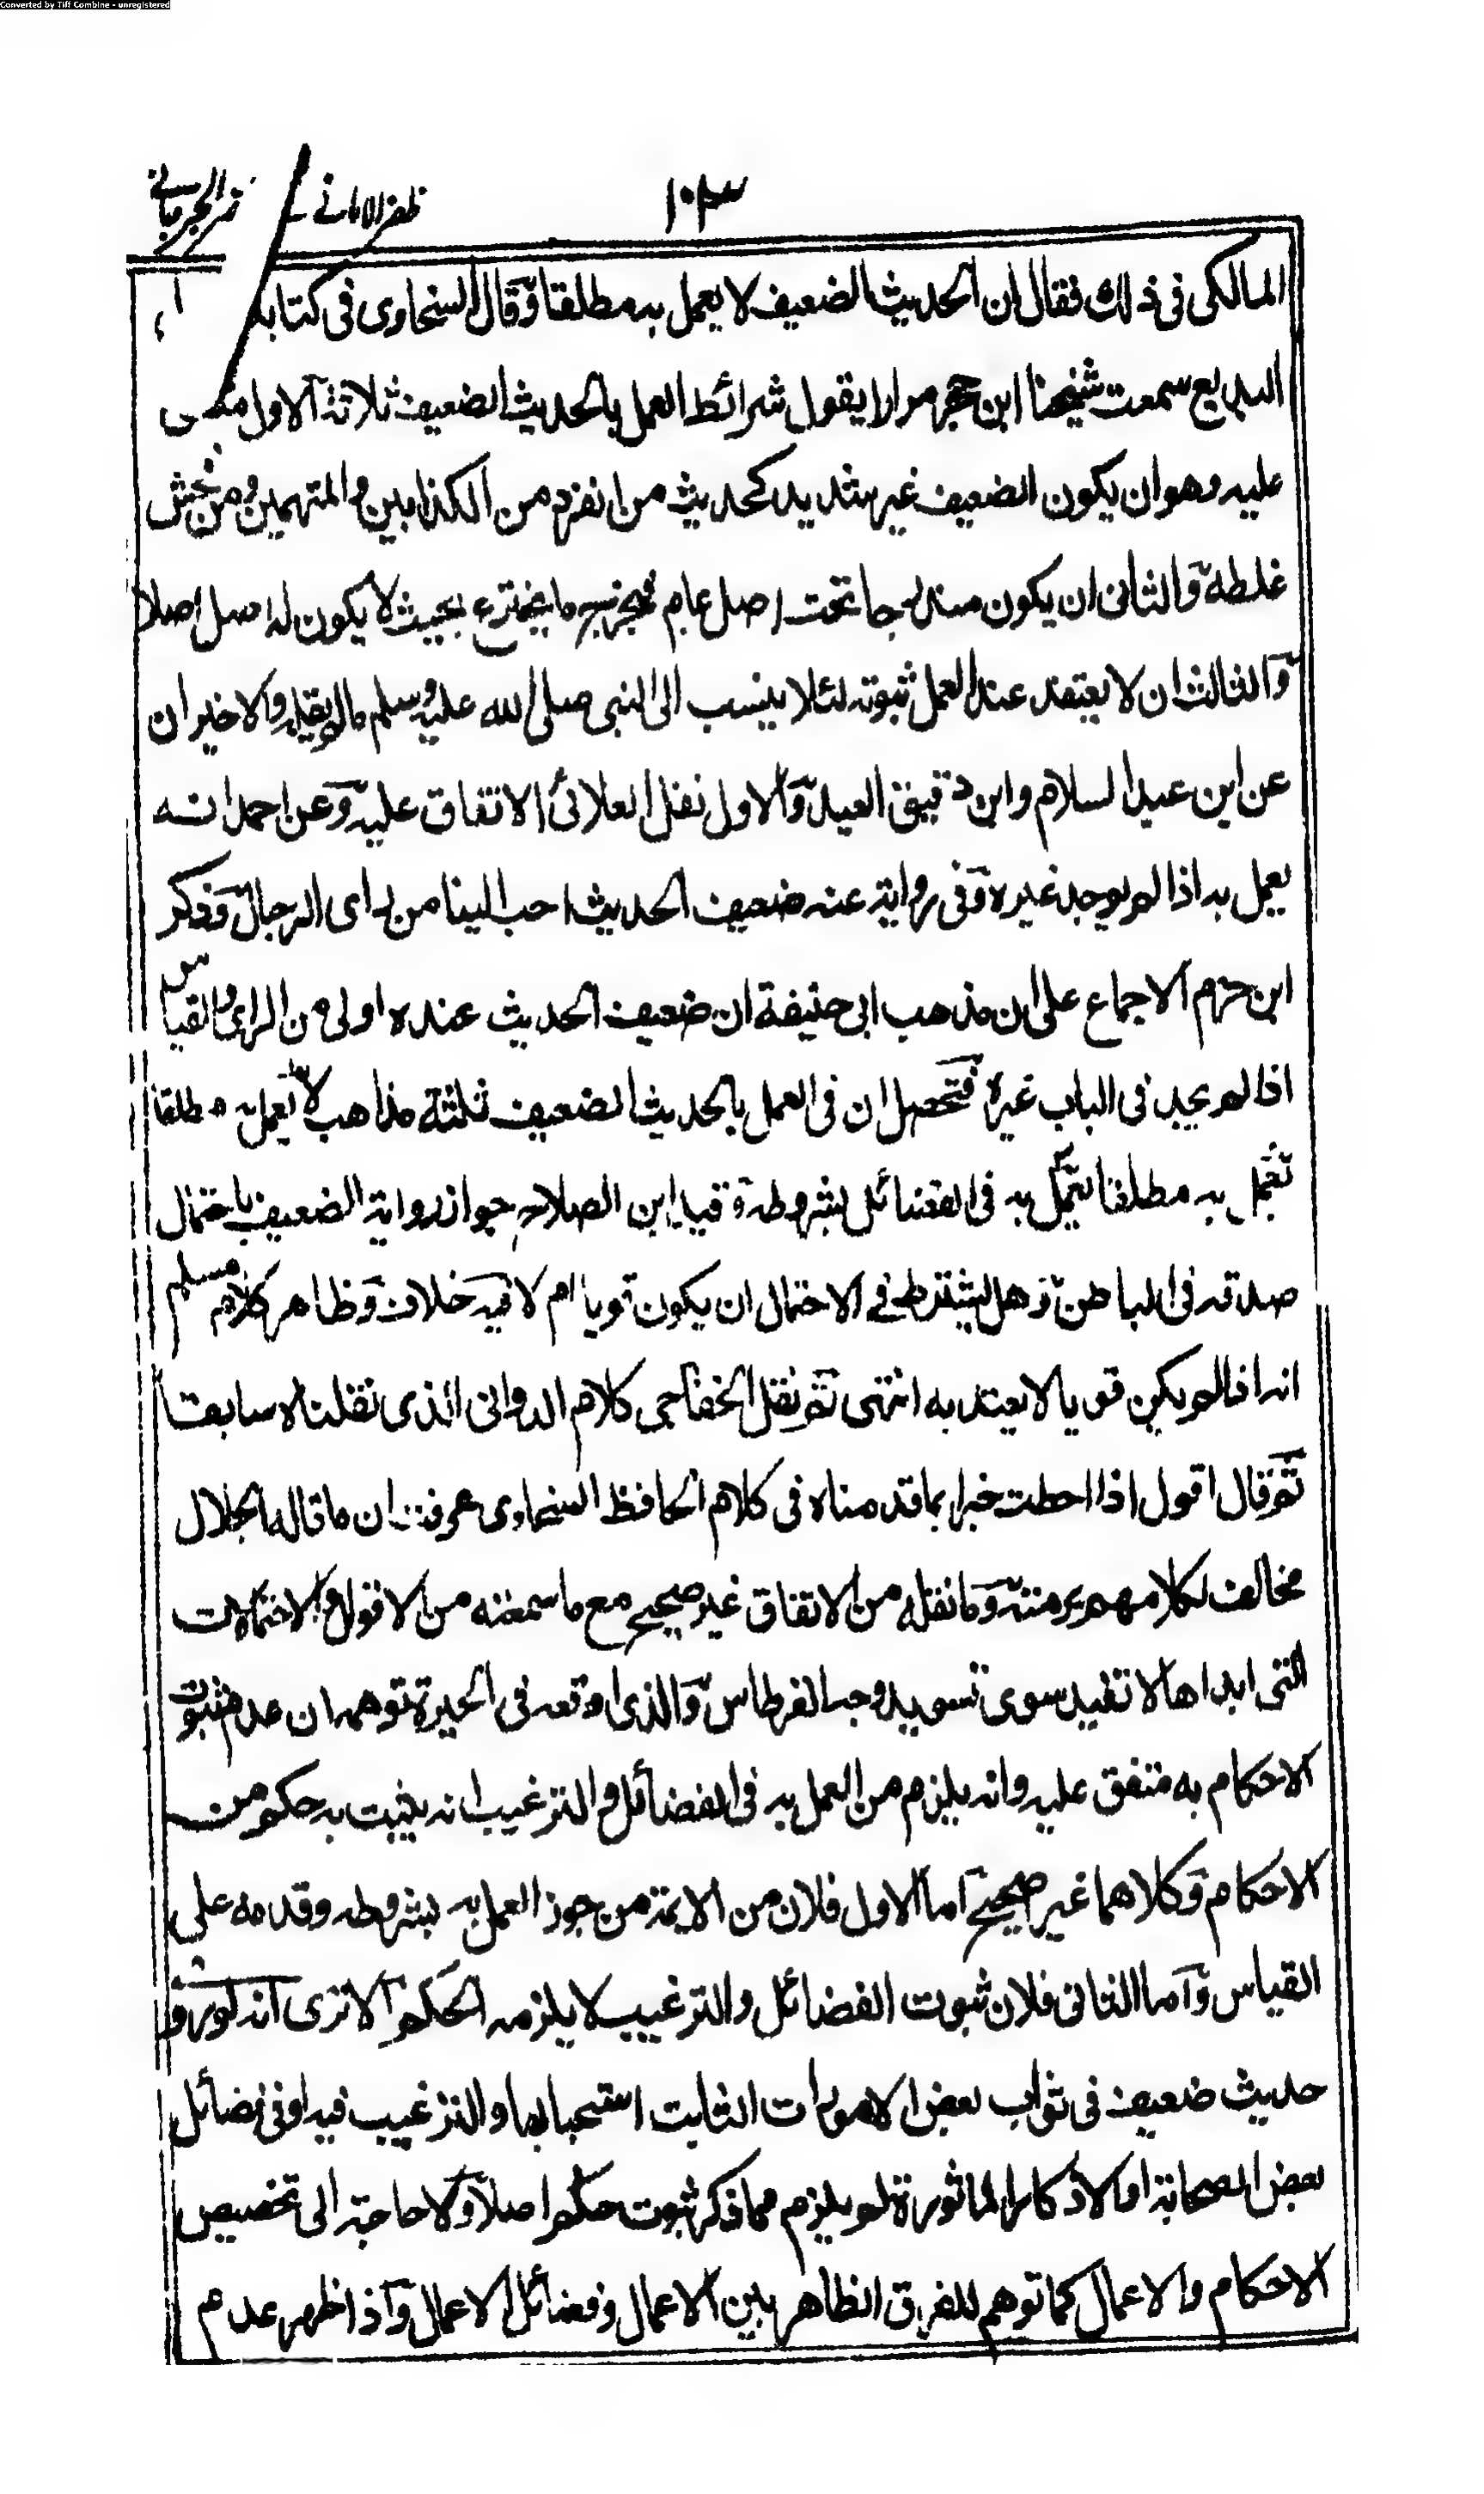 Converted by Tiff Combine - unregistered
١٠٣
ظفر الامانى
المالكى فى ذلك فقال ان الحديث الضعيف لا يعمل به مطلقا وقال السخاوى فى كتابه
البديع سمعت شيخنا ابن حجر مرارا يقول شرائط العمل بالحديث الضعيف ثلاثة الاول
عليه وهو ان يكون الضعيف غير شديد كحديث من انفرد من الكذابين والمتهمين ومن فحش
غلطه والثانى ان يكون مندرجا تحت اصل عام فيخرج ما يخترع بحيث لا يكون له اصل اصلا
والثالث ان لا يعتقد عند العمل ثبوته لئلا ينسب الى النبى صلى الله عليه وسلم ما لم يقله والاخيران
عن ابن عبد السلام وابن دقيق العيد والاول نقل العلائى الاتفاق عليه وعن احمد انه
يعمل به اذا لم يوجد غيره وفى رواية عنه ضعيف الحديث احب الينا من راى الرجال وذكر
ابن حزم الاجماع على ان مذهب ابى حنيفة ان ضعيف الحديث عنده اولى من الراى والقياس
اذا لم يجد فى الباب غيره فتحصل ان فى العمل بالحديث الضعيف ثلثة مذاهب لا يعمل به مطلقا
يعمل به مطلقا يعمل به فى الفضائل بشروطه وقيد ابن الصلاح جواز رواية الضعيف باحتمال
صدقه فى الباطن وهل يشترط فى الاحتمال ان يكون قويا ام لا فيه خلاف وظاهر كلام مسلم
انه اذا لم يكن قويا لا يعتد به انتهى ثم نقل الخفاجى كلام الدوانى الذى نقلناه سابقا
ثم قال اقول اذا احطت خبرا بما قدمناه فى كلام الحافظ السخاوى عرفت ان ما قاله الجلال
مخالف لكلامهم برمته وما نقله من الاتفاق غير صحيح مع ما سمعته من الاقوال والاحتمالات
التى ابداها لا تفيد سوى تسويد وجه القرطاس والذى اوقعه فى الحيرة توهمه ان عدم ثبوت
الاحكام به متفق عليه وانه يلزم من العمل به فى الفضائل والترغيب انه يثبت به حكم من
الاحكام وكلاهما غير صحيح اما الاول فلان من الايمة من جوز العمل به بشروطه وقدمه على
القياس واما الثانى فلان ثبوت الفضائل والترغيب لا يلزمه الحكم الا ترى انه لو روى
حديث ضعيف فى ثواب بعض الامورات الثابت استحبابها والترغيب فيه او فى فضائل
بعض الصحابة او الاذكار الماثورة لم يلزم مما ذكر ثبوت حكم اصلا ولا حاجة الى تخصيص
الاحكام والاعمال كما توهم للفرق الظاهر بين الاعمال وفضائل الاعمال واذا ظهر عدم